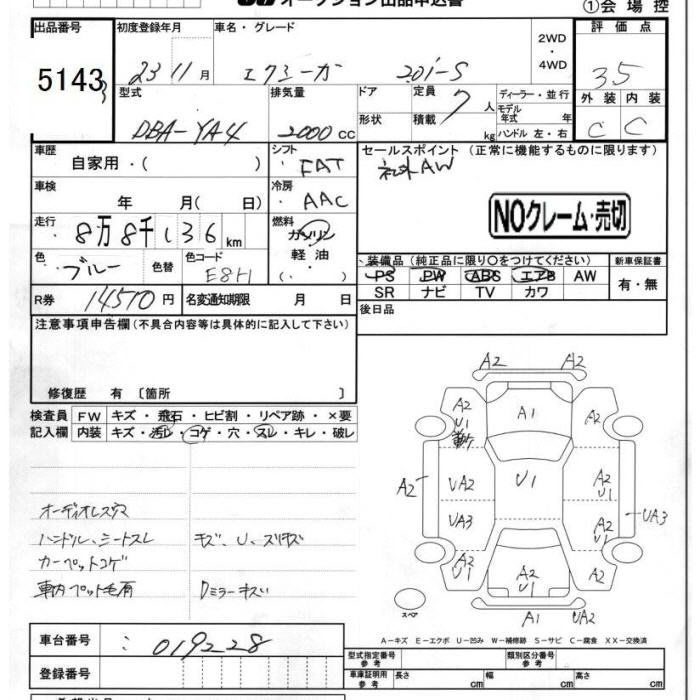 オークション出品申込書
①会場控
出品番号 初度登録年月 車名・グレード 2WD ・ 4WD 評価点
5143 23 11月 エクシーガ 2.0i-S 3.5
型式 排気量 ドア 定員 7人 ディーラー・並行 外装 内装
DBA-YA4 2000cc 形状 積載 kg モデル年式 年 ハンドル 左・右 C C
車歴 自家用・( ) シフト FAT セールスポイント (正常に機能するものに限ります)
社外AW
車検 年 月( 日) 冷房 AAC
NOクレーム・売切
走行 8万8千136km 燃料 ガソリン・軽油 ( ・ )
色 ブルー 色替 色コード E8H
装備品(純正品に限り○をつけてください) 新車保証書
PS PW ABS エアB AW 有・無
SR ナビ TV カワ
R券 14510円 名変通知期限 月 日 後日品
注意事項申告欄(不具合内容等は具体的に記入して下さい)
修復歴 有〔箇所 〕
検査員 FW キズ・飛石・ヒビ割・リペア跡・×要
記入欄 内装 キズ・汚レ・コゲ・穴・スレ・キレ・破レ
オーディオレス穴
ハンドル、シートスレ キズ、U、スリキズ
カーペットコゲ
車内ペット毛有 Rミラーキズ
A2 A2
A2 U1 A1 A2
A2 UA2 U1 A2 U1
UA3 A2 U1 UA3
A2 U1 A2 U1 A2
スペア A1 UA2
A-キズ E-エクボ U-凹み W-補修跡 S-サビ C-腐食 XX-交換済
車台番号 : 019228
型式指定番号 参考 類別区分番号 参考
登録番号 車庫証明用 参考 長さ cm 幅 cm 高さ cm